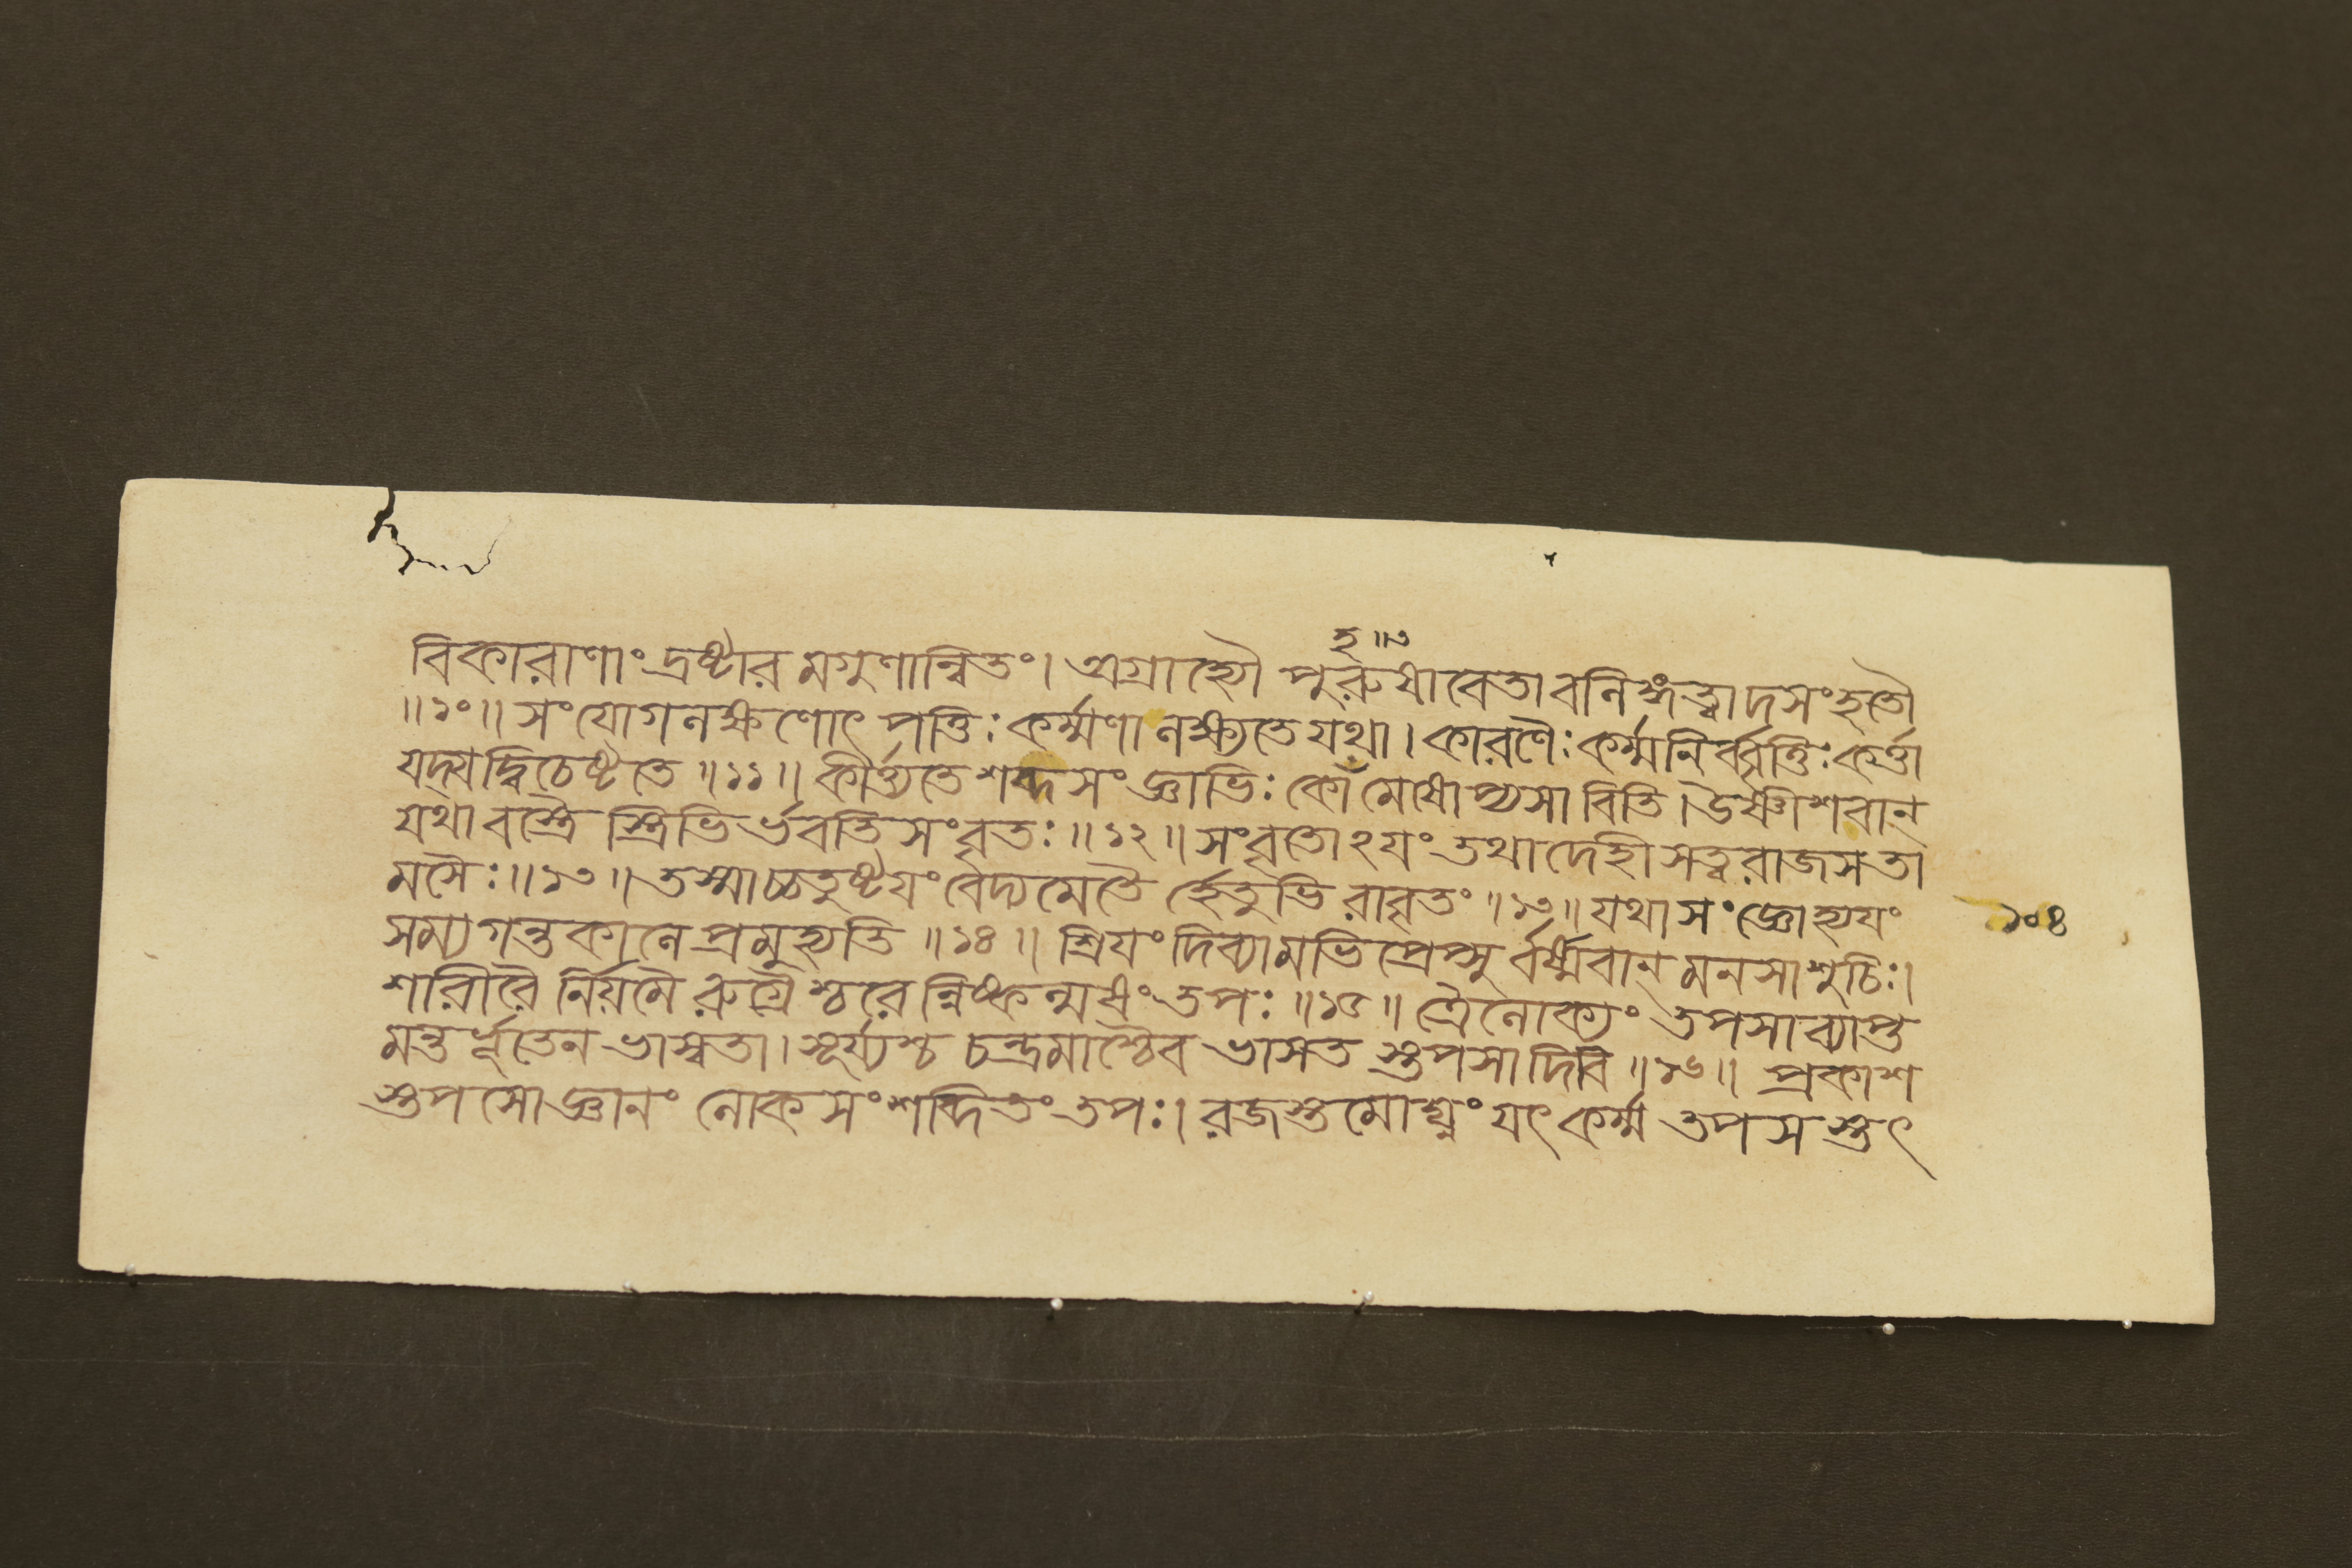 হ॥৩
বিকারাণাং দ্রষ্টার মগুণান্বিতং। অগ্রাহ্যৌ পুরুষাবেতাবনিঙ্গত্বাদসংহতৌ
॥১০॥ সংযোগনক্ষণোৎপত্তিঃ কর্ম্মণা নক্ষ্যতে যথা। কারণৈঃ কর্ম্মনির্বৃত্তিঃ কর্ত্তা
যদ্যদ্বিচেষ্টতে ॥১১॥ কীর্ত্ত্যতে শব্দসংজ্ঞাভিঃ কোঁমেষোপ্যসাবিতি। উৈষ্ণীশবান্
যথা বস্ত্রৈ স্ত্রিভি র্ভবতি সংবৃতঃ ॥১২॥ সংবৃতোঽযং তথা দেহী সত্বরাজসতা
মসৈঃ ॥১৩॥ তস্মাচ্চতুষ্টযং বেদ্যমেতৈ র্হেতুভি রাবৃতং ॥১৩॥ যথা সংজ্ঞোহ্যযং
সম্যগন্তকানে প্রমুহ্যতি ॥১৪॥ শ্রিযং দিব্যামভিপ্রেপ্সু র্বর্ষ্মবান্ মনসাশুচিঃ।
শারীরৈ র্নিয়মৈ রুগ্রৈ শ্চরেন্নিষ্কন্মষং তপঃ ॥১৫॥ ত্রৈনোক্যং তপসাব্যাপ্ত
মন্তর্ভূতেন ভাস্বতা। সূর্য্যশ্চ চন্দ্রমাশ্চৈব ভাসত স্তপসা দিবি ॥১৬॥ প্রকাশ
স্তপসো জ্ঞানং নোকসংশব্দিতং তপঃ। রজস্তমোঘ্নং যৎ কর্ম্ম তপস স্তৎ
১০৪